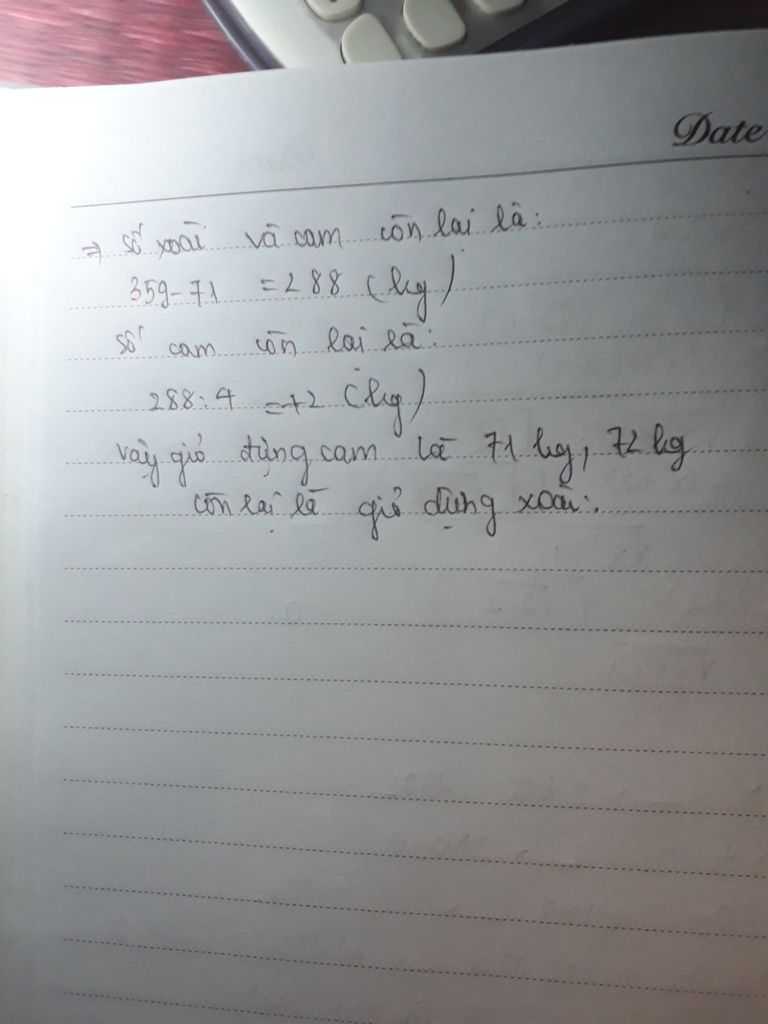 Date
=> số xoài và cam còn lại là:
359-71 = 288 (kg)
số cam còn lại là:
288:4 = 72 (kg)
vậy giỏ đựng cam là 71 kg, 72 kg
còn lại là giỏ đựng xoài.